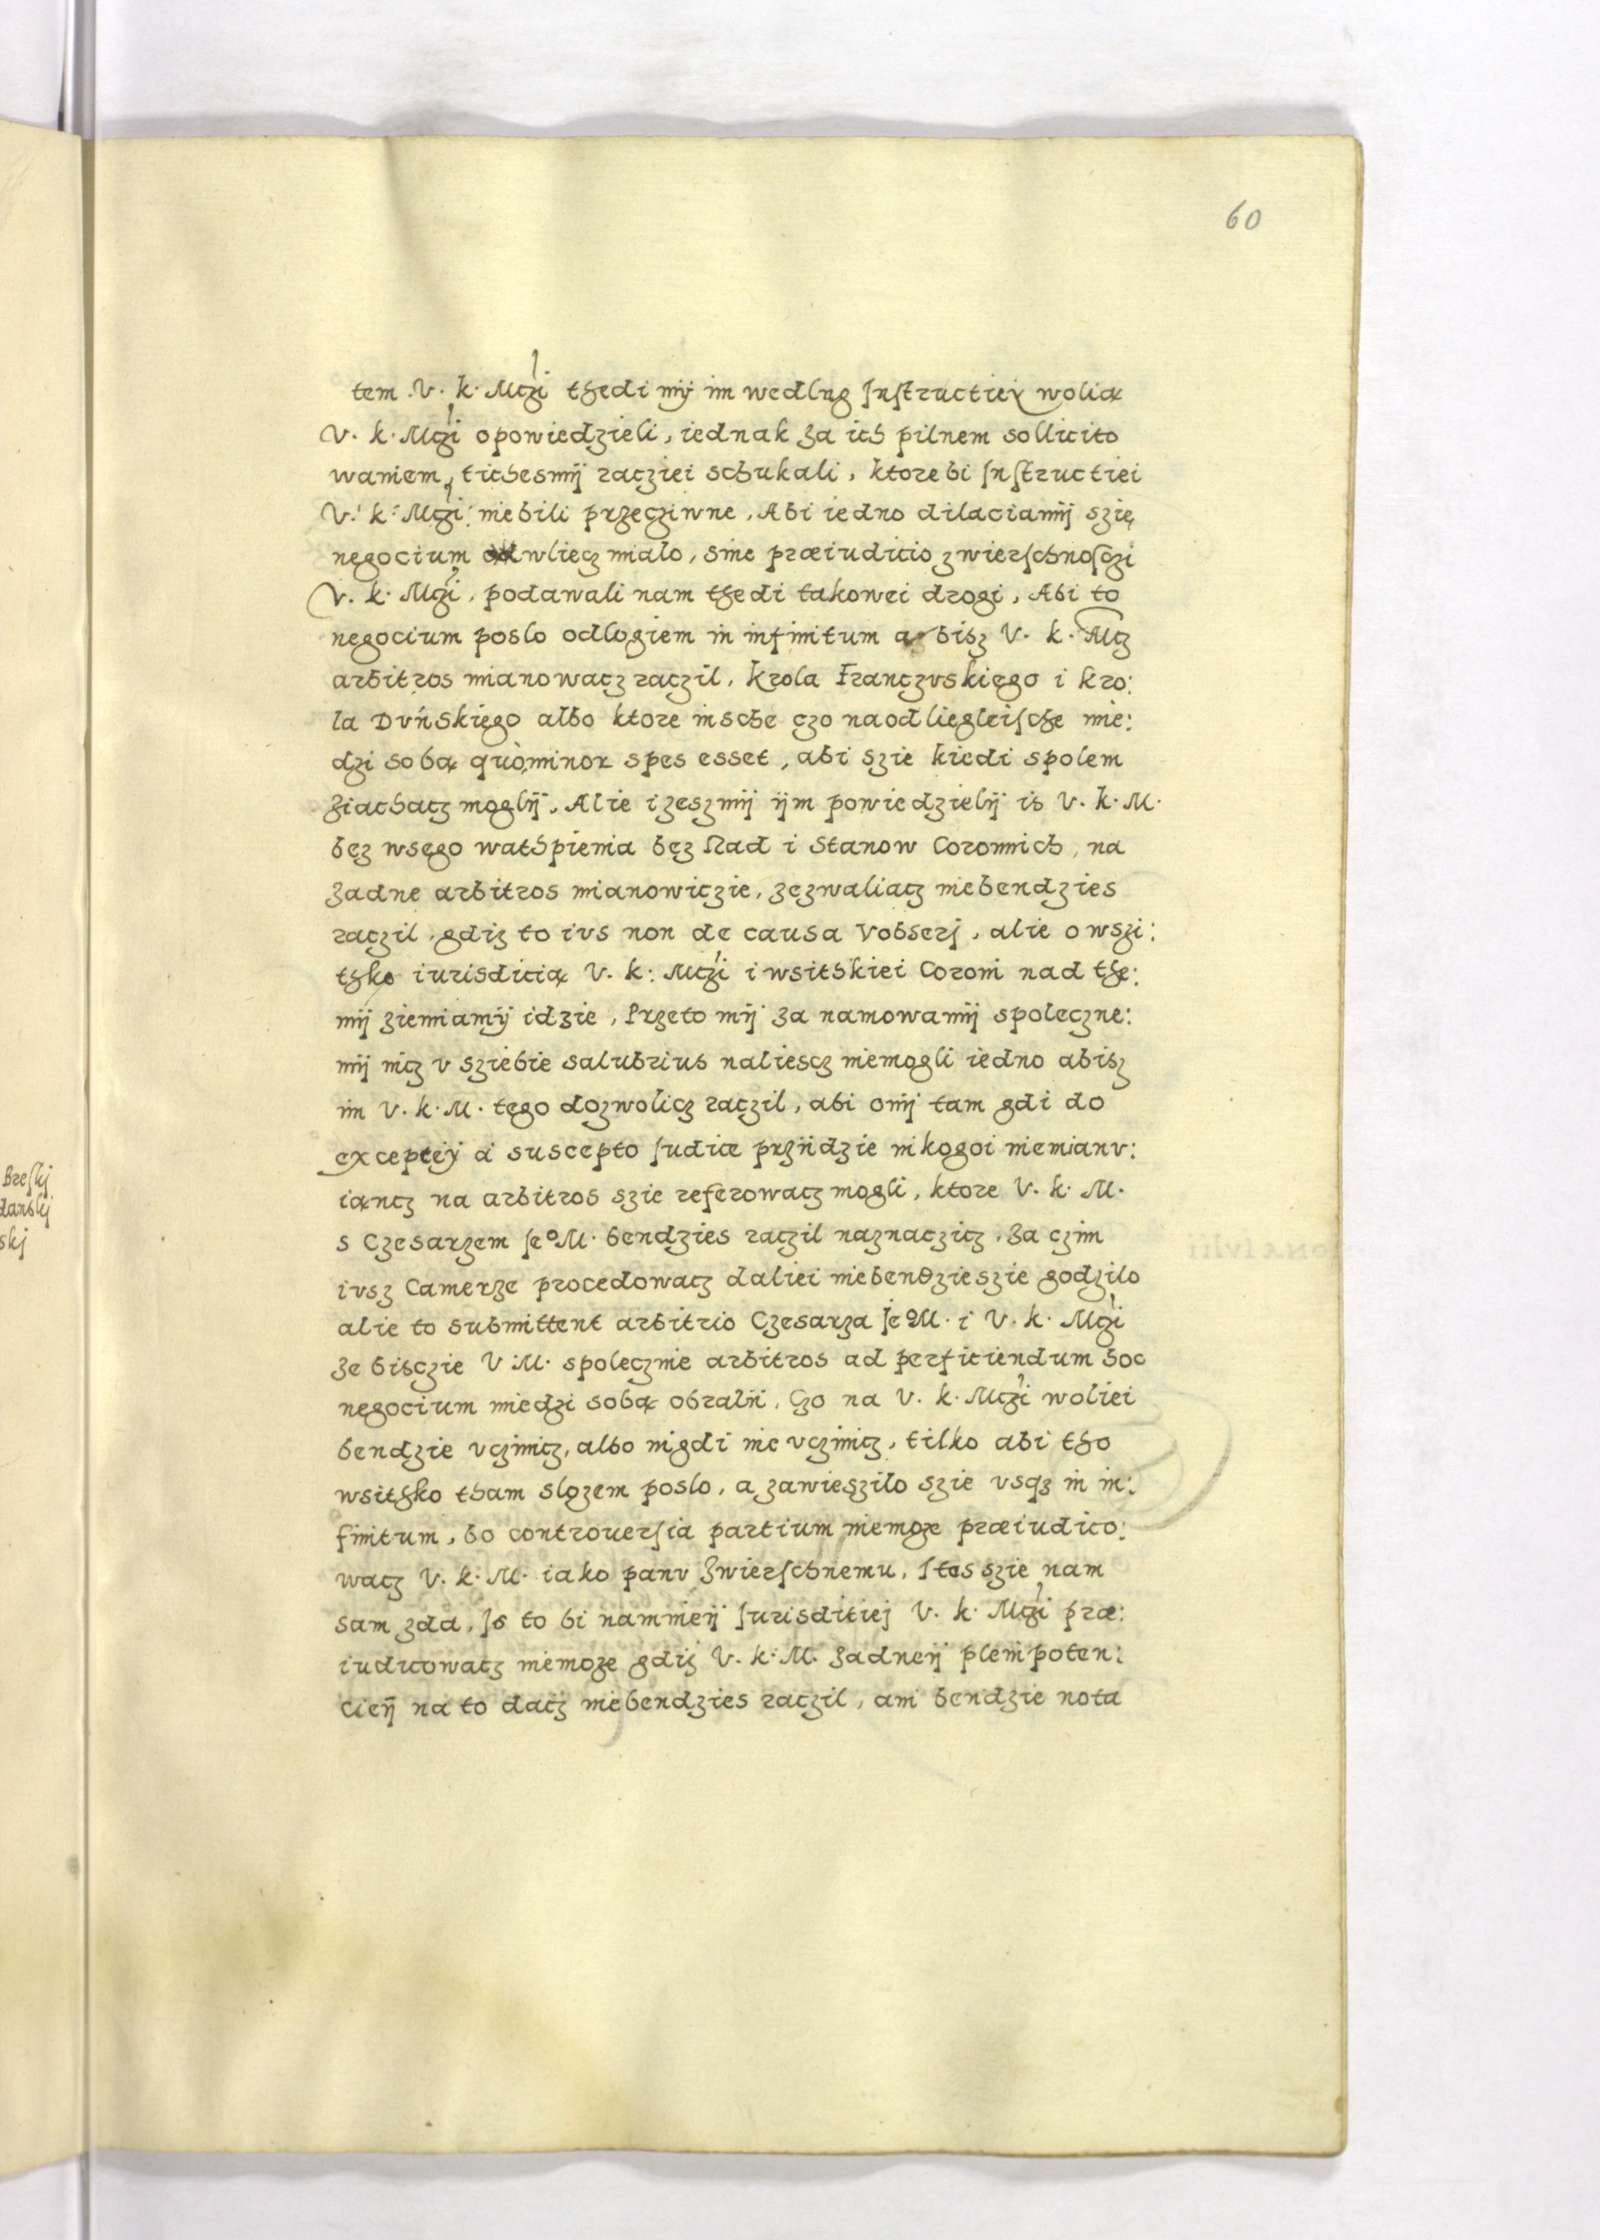 60
tem V. k. Mczi thedi mij im wedlug Instructiey wolią
V. k. Mczi opowiedzieli, iednak za ich pilnem sollicito
waniem, tichesmij racziei schukali, ktorebi Instructiei
V. k. Mczi niebili przecziwne, Abi iedno dilaciamij szię
negocium odwliecz mialo, sine præiuditio zwierschnosczi
V. k. Mczi, podawali nam thedi takowei drogi, Abi to
negocium poslo odlogiem in infinitum a bisz V. k. Mcz
arbitros mianowacz raczil, krola Franczuskięgo i kro:
la Duńskięgo albo ktore insche czo naodliegleische mie:
dzi sobą quò minor spes esset, abi szie kiedi spolem
ziachacz moglij, Alie izeszmij ijm powiedzielij is V. k. M.
bęz wsęgo wathpienia bęz Rad i Stanow Coronnich, na
zadne arbitros mianowiczie, zęzwaliacz niebendzies
raczil, gdiz to ius non de causa Vobserj, alie o wszi:
thko iurisdicią V. k: Mczi i wsitskiei Coroni nad the:
mij ziemiamij idzie, Przeto mij za namowamij spoleczne:
mij nicz v sziebie salubrius naliescz niemogli iedno abisz
im V. k. M. tęgo dozwolicz raczil, abi onij tam gdi do
exceptiey à suscepto Judice przijdzie nikogoi niemianu:
iąncz na arbitros szie referowacz mogli, ktore V. k. M.
s Czesarzem Je° M. bendzies raczil naznaczicz, za czim
iusz Camerze procedowacz daliei niebendzie szie godzilo
alie to submittent arbitrio Czesarza Je° M. i V. k. Mczi
ze bisczie V M. spolecznie arbitros ad perficiendum hoc
negocium miedzi sobą obralij, Czo na V. k. Mczi woliei
bendzie vczinicz, albo nigdi nie vczinicz, tilko abi tho
wsithko tham slozem poslo, a zawieszilo szie vsqz in in:
finitum, bo controuersia partium niemoze præiudico:
wacz V. k. M. iako panu zwierschnemu, Itos szie nam
sam zda, Js to bi namnieij Jurisditiej V. k. Mczi præ:
iudicowacz niemoze gdiz V. k. M. zadneij plenipoten:
cieij na to dacz niebendzies raczil, ani bendzie nota